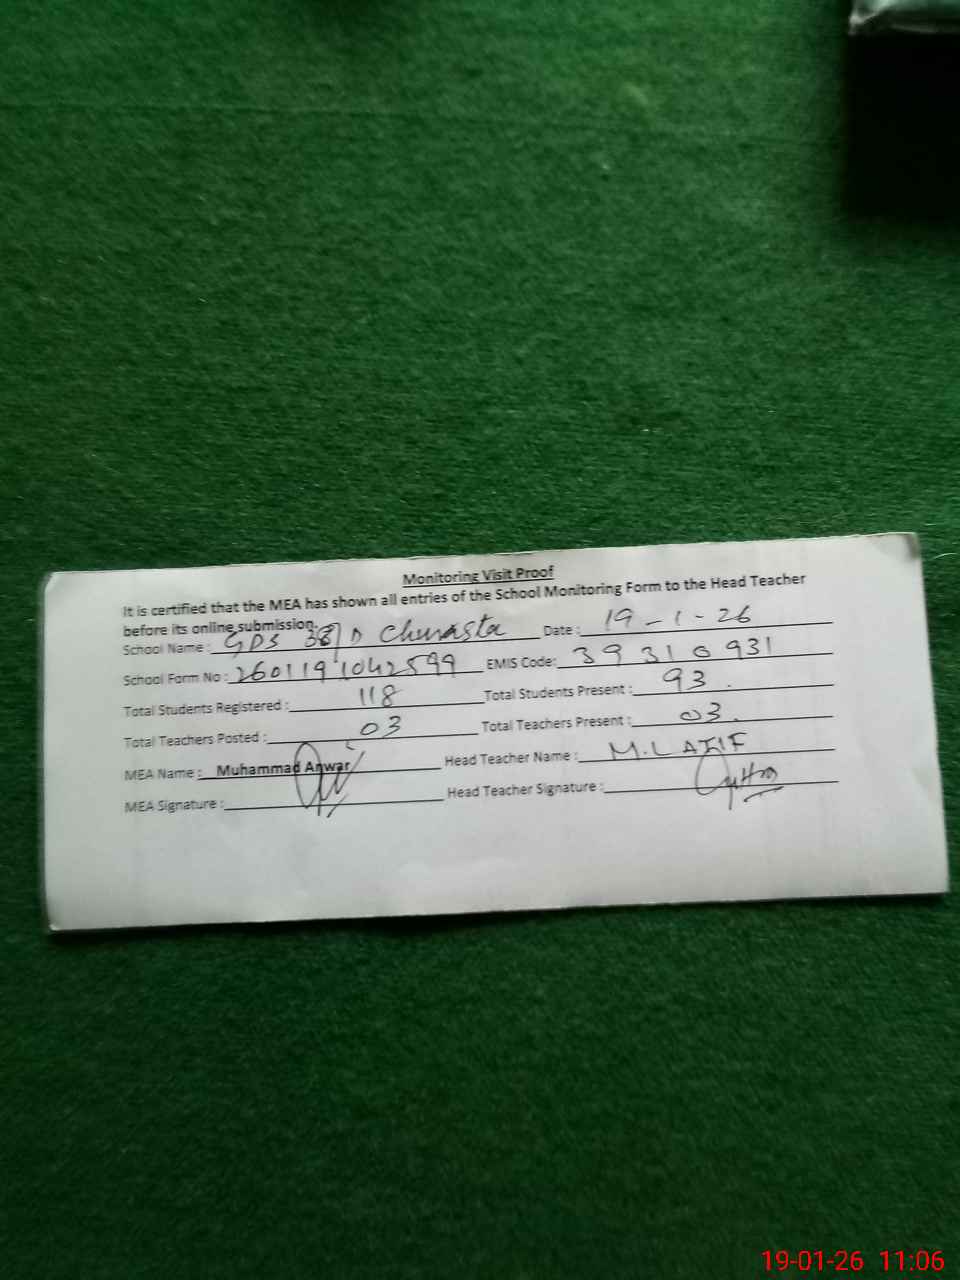 Monitoring Visit Proof
It is certified that the MEA has shown all entries of the School Monitoring Form to the Head Teacher
before its online submission.
School Name : GPS 38/D Churasta Date : 19-1-26
School Form No : 2601191042599 EMIS Code: 39310931
Total Students Registered : 118 Total Students Present : 93.
Total Teachers Posted : 03 Total Teachers Present : 03.
MEA Name : Muhammad Anwar Head Teacher Name : M.LATIF
MEA Signature : Head Teacher Signature :
19-01-26 11:06